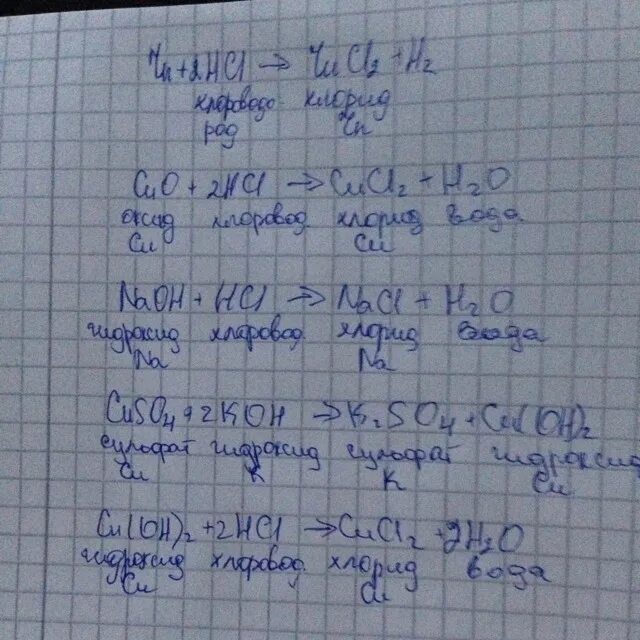 Zn + 2HCl → ZnCl2 + H2
хлоровод хлорид
род Zn
CuO + 2HCl → CuCl2 + H2O
оксид хлоровод хлорид вода
Cu Cu
NaOH + HCl → NaCl + H2O
гидроксид хлоровод хлорид вода
Na Na
CuSO4 + 2KOH → K2SO4 + Cu(OH)2
сульфат гидроксид сульфат гидроксид
Cu K K Cu
Cu(OH)2 + 2HCl → CuCl2 + 2H2O
гидроксид хлоровод хлорид вода
Cu Cu